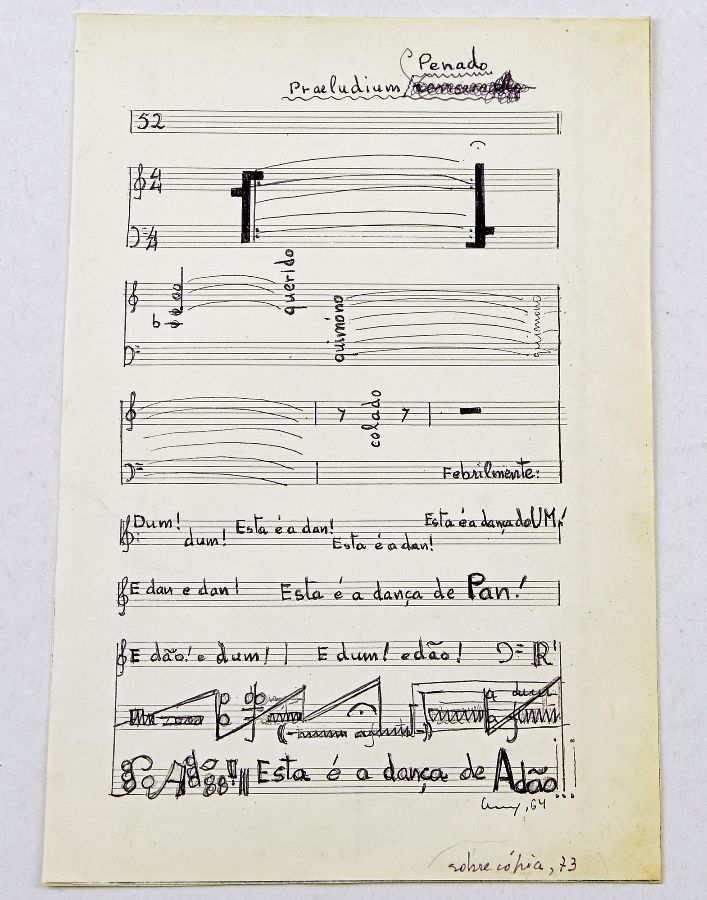 Penado
Praeludium
52
4 4
4 4
querido
quimono
quimono
colado
Febrilmente:
Dum! dum! Esta é a dan! Esta é a dan! Esta é a dança do UM!
E dan e dan! Esta é a dança de Pan!
E dão! e dum! E dum! e dão!
Esta é a dança de Adão!!!
64
sobre cópia, 73